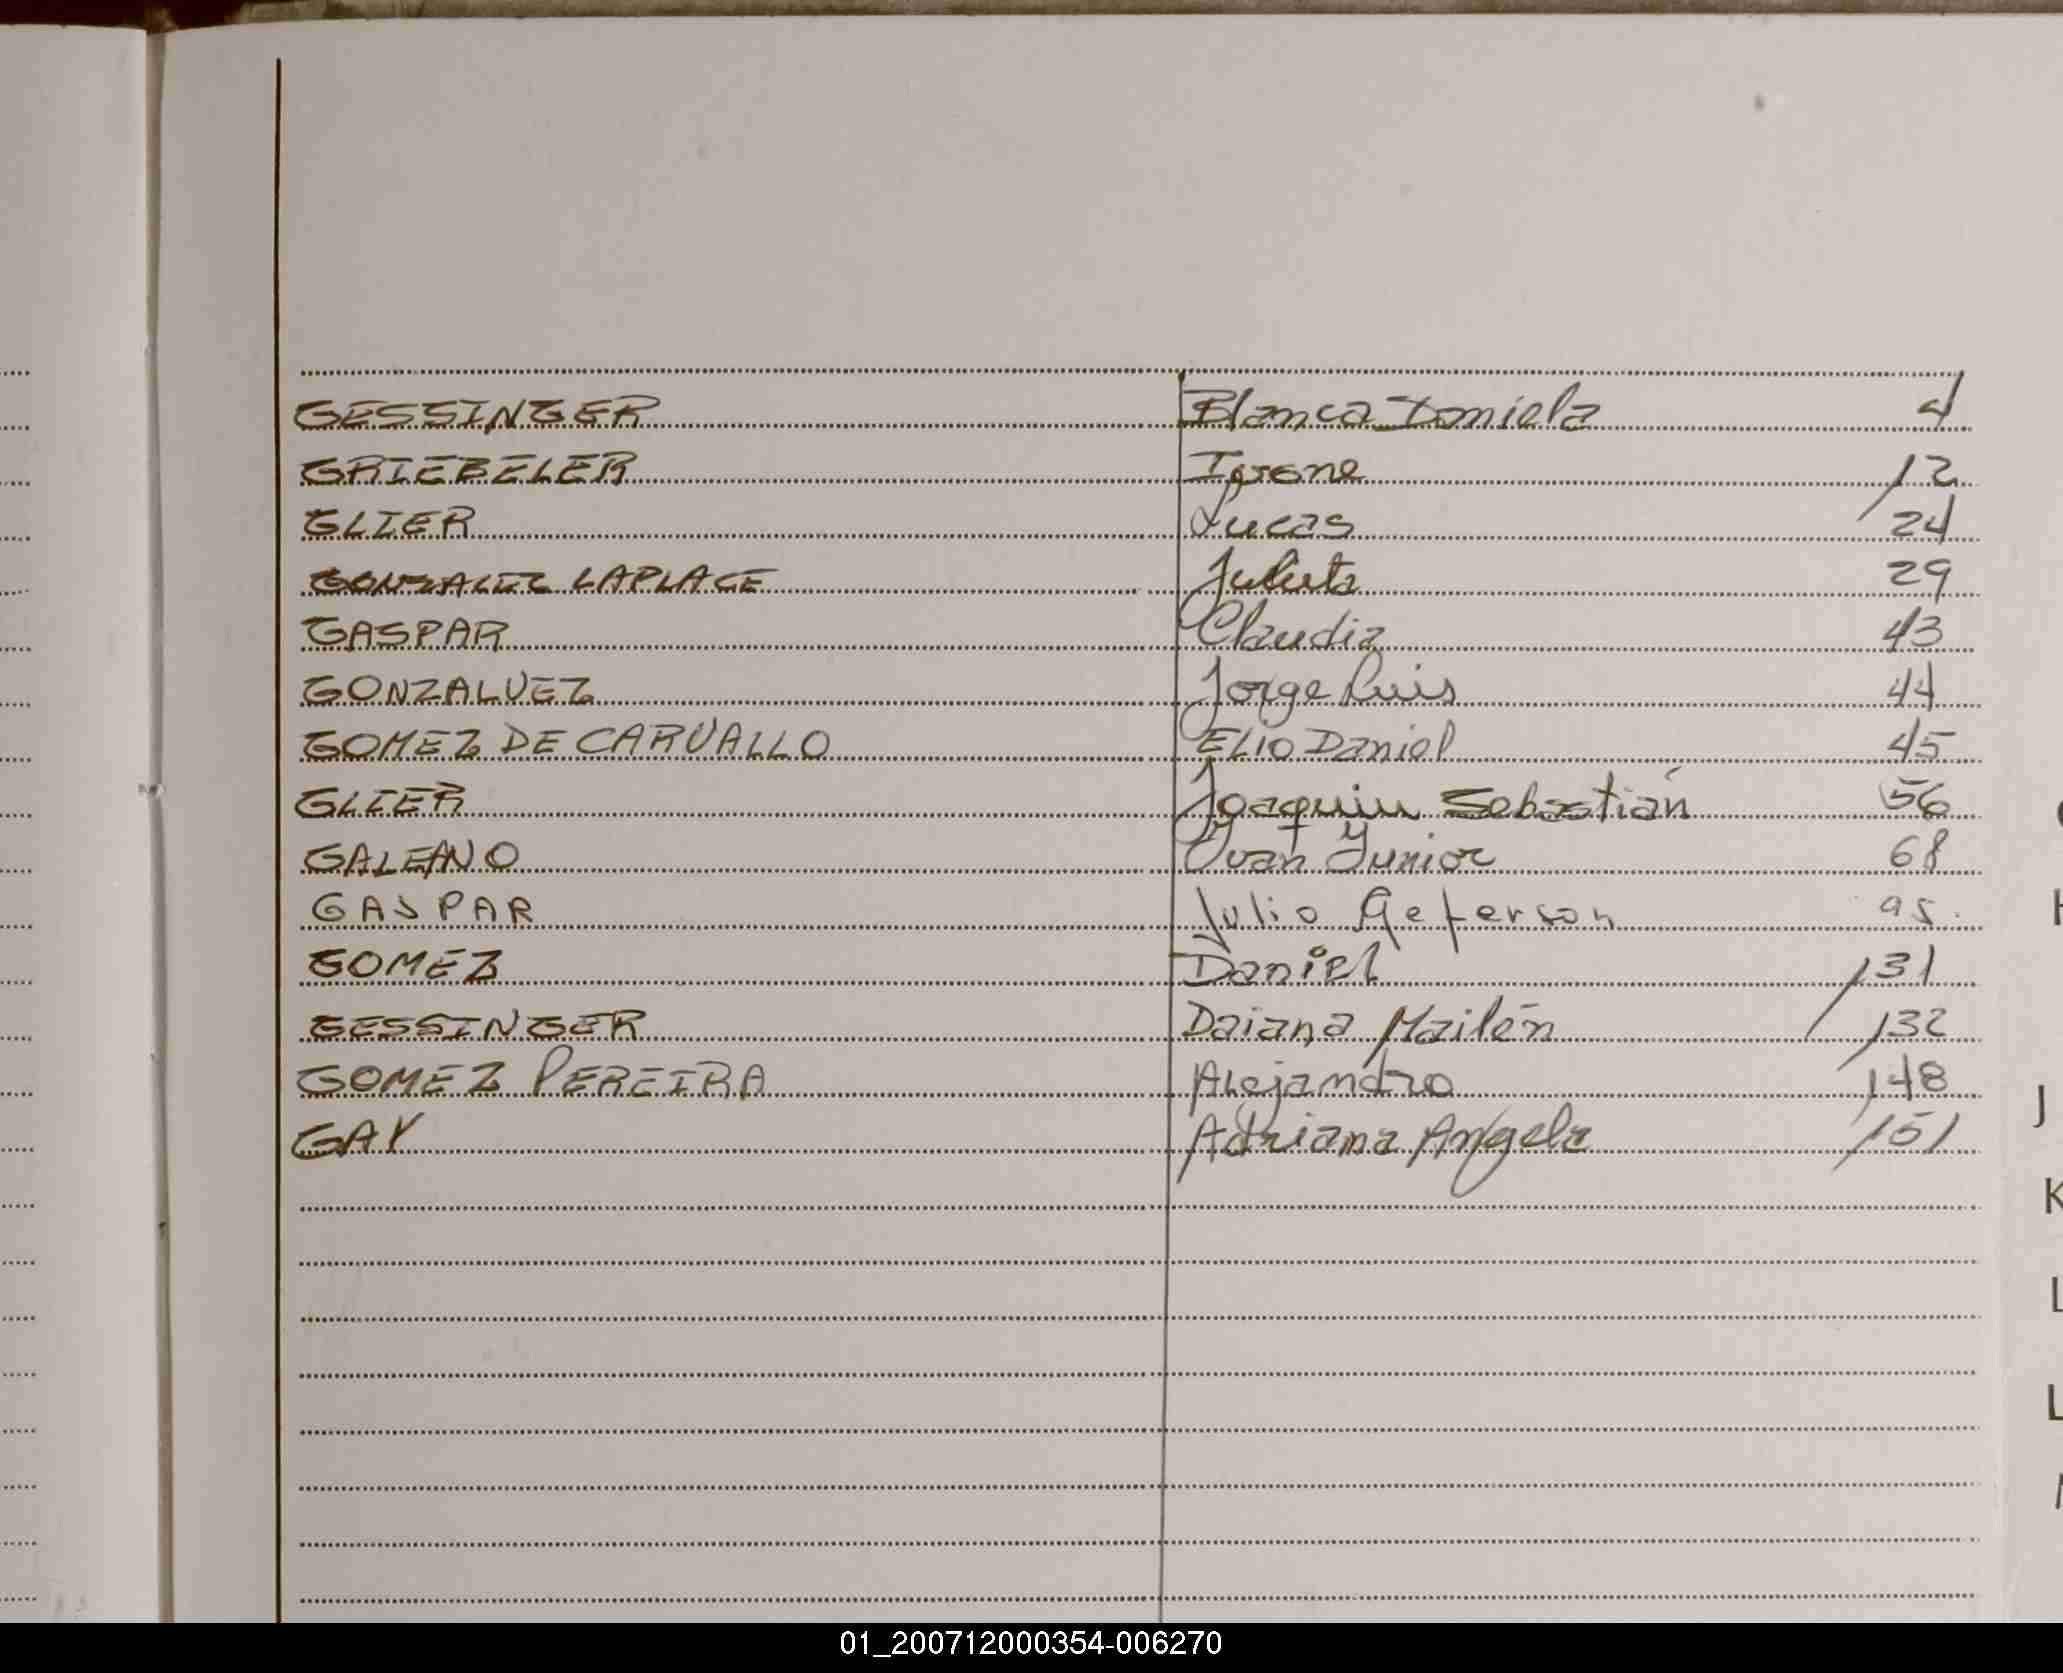 GESSINGER Blanca Daniela 4
GRIEBELER Ivone 12
GLIER Lucas 24
GONZALEZ LAPLACE Julieta 29
GASPAR Claudia 43
GONZALVEZ Jorge Luis 44
GOMEZ DE CARVALLO ELIO Daniel 45
GLIER Joaquin Sebastián 56
GALEANO Ivan Junior 68
GASPAR Julio Geferson 95.
GOMEZ Daniel 131
GESSINGER Daiana Mailén 132
GOMEZ PEREIRA Alejandro 148
GAY Adriana Angela 151
J
K
L
01_200712000354-006270